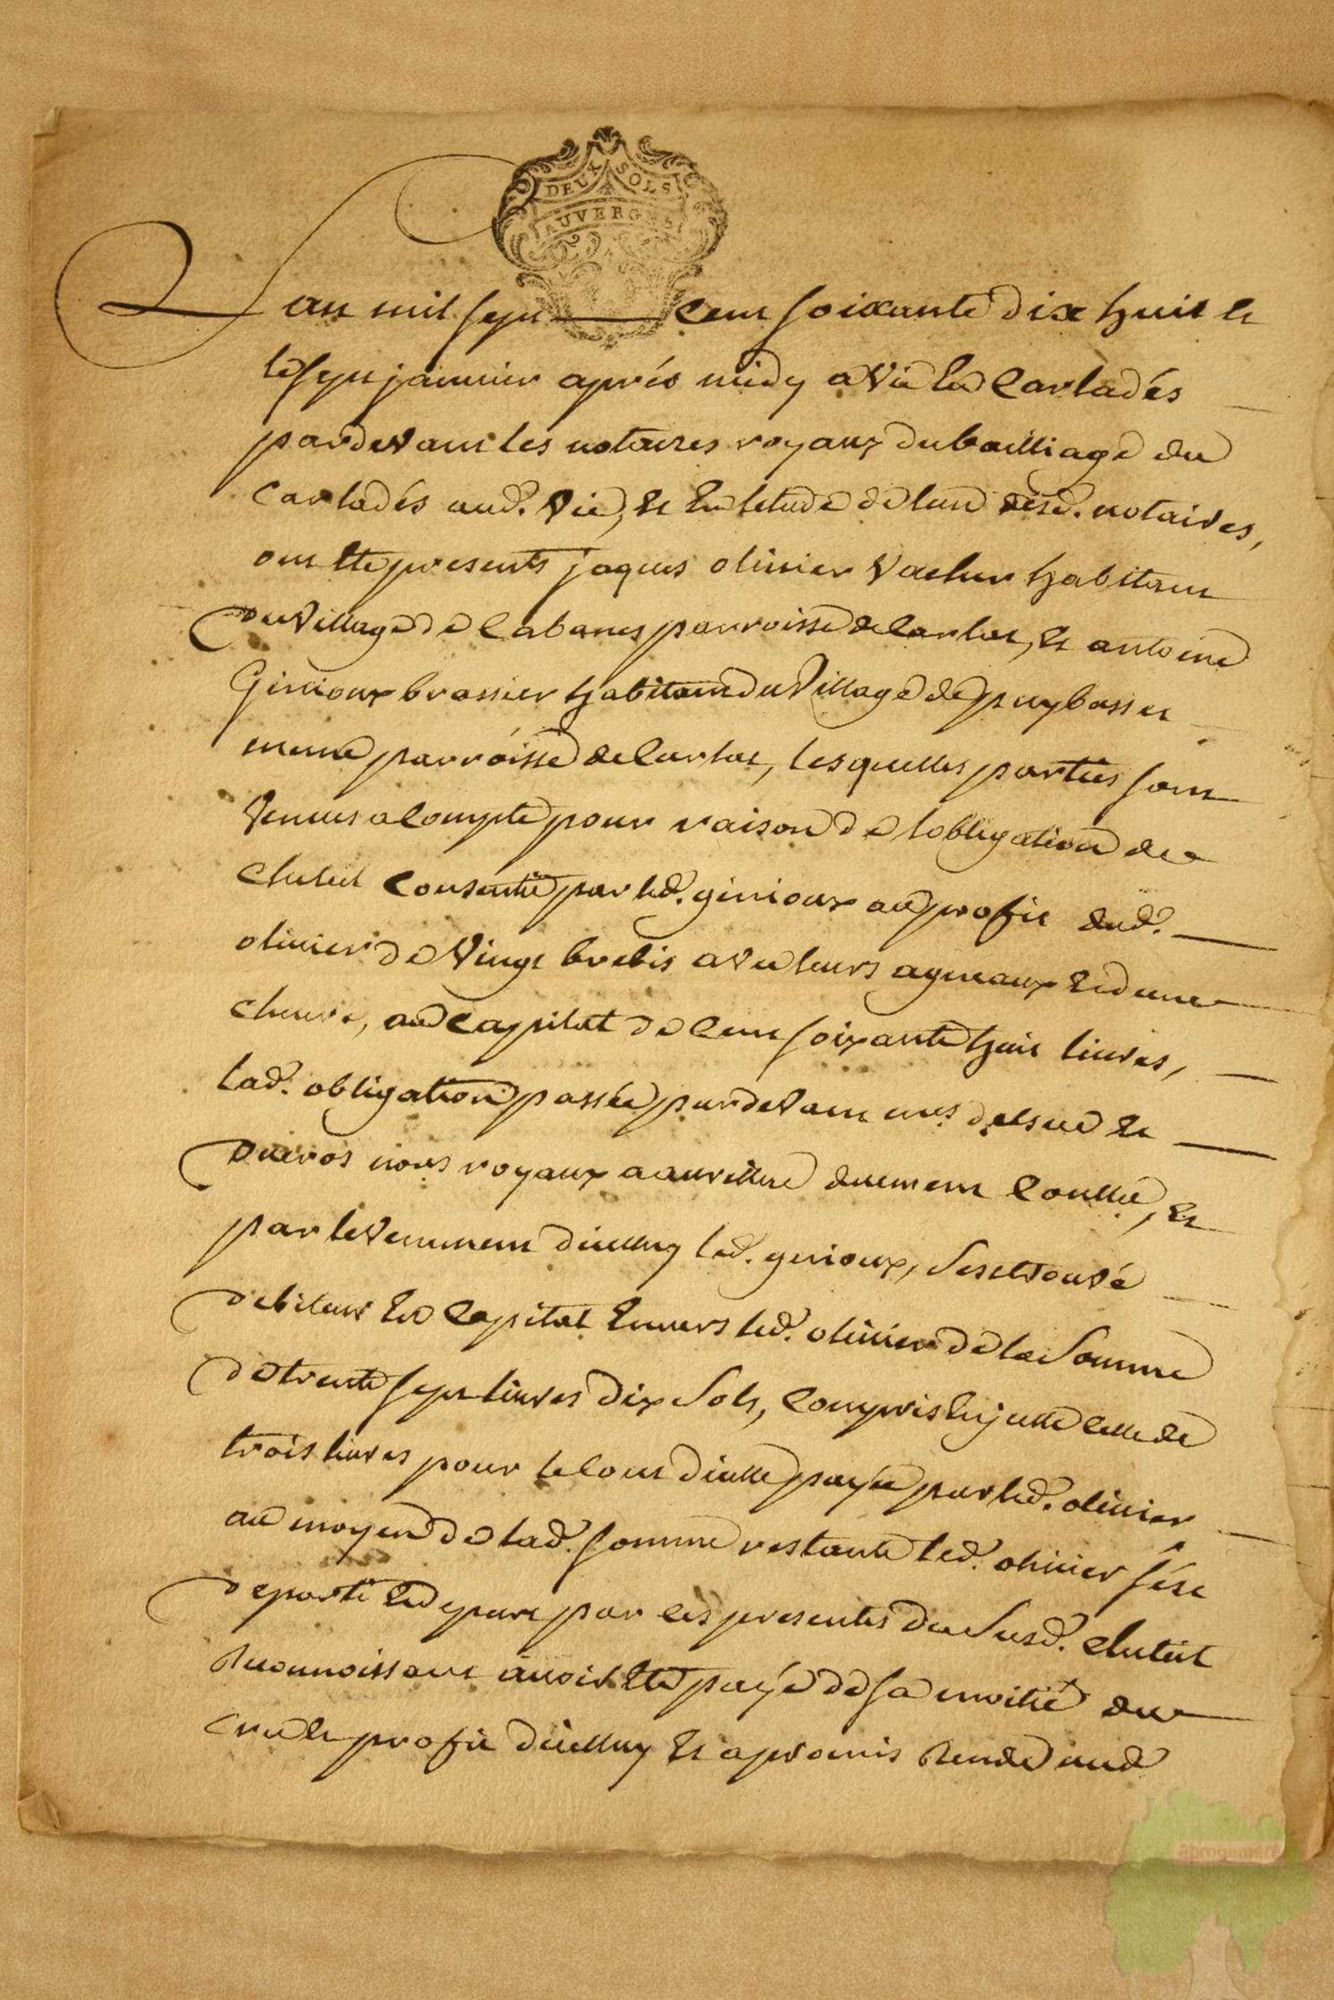 DEUX SOLS
AUVERGNE
Lan mil sept cent soixante dix huit et
le sept janvier après midy a Vic En Carladés
pardevant les notaires royaux du bailliage du
Carladés aud. Vic, et En letude de lun desd. notaires,
ont Eté presents jaques olivier Vacher habitant
du Village de Cabanes parroisse de Carlat, et antoine
Ginioux brassier habitant du Village de puybasset
meme parroisse de Carlat, lesquelles parties sont
Venues a Compte pour raison de lobligation de
Cheteil Consentie par led. ginioux au profit dud.
olivier de Vingt brebis avec leurs agneaux et dune
Chevre, au Capital de Cent soixante huit livres,
lad. obligation passée pardevant mes delsue et
duiros nores royaux a aurillac duement Conllée, et
par levenement dicelluy led. ginioux, sest trouvé
debiteur En Capital Envers led. olivier de la Somme
de trente sept livres dix Sols, Compris En jcelle Celle de
trois livres pour le Cout dicelle payée par led. olivier
au moyen de lad. somme restante led. olivier sést
departi et depart par Ces presentes du Susd. Cheteil
Reconnoissant avoir Eté payé de sa moitié du
Cru et profit dicelluy et a promis Rendre aud
aprogemere